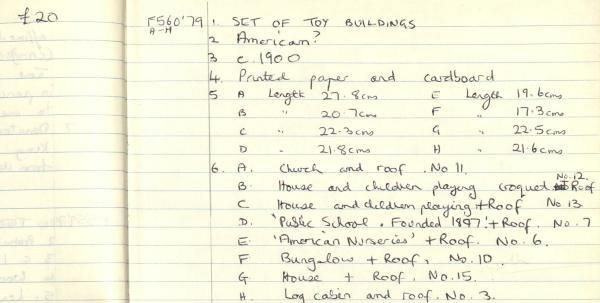 £20
F560'79 1. SET OF TOY BUILDINGS
A-H
2 American?
3 c.1900
4. Printed paper and cardboard
5 A Length 27.8cms E Length 19.6cms
B " 20.7cms F " 17.3cms
C " 22.3cms G " 22.5cms
D " 21.8cms H " 21.6cms
6. A. Church and roof. No 11.
B. House and children playing croquet + Roof No.12.
C House and children playing + Roof No 13
D. 'Public School. Founded 1897'. + Roof. No. 7
E. 'American Nurseries' + Roof. No. 6.
F Bungalow + Roof, No. 10.
G House + Roof. No. 15.
H. Log cabin and roof. No. 3.